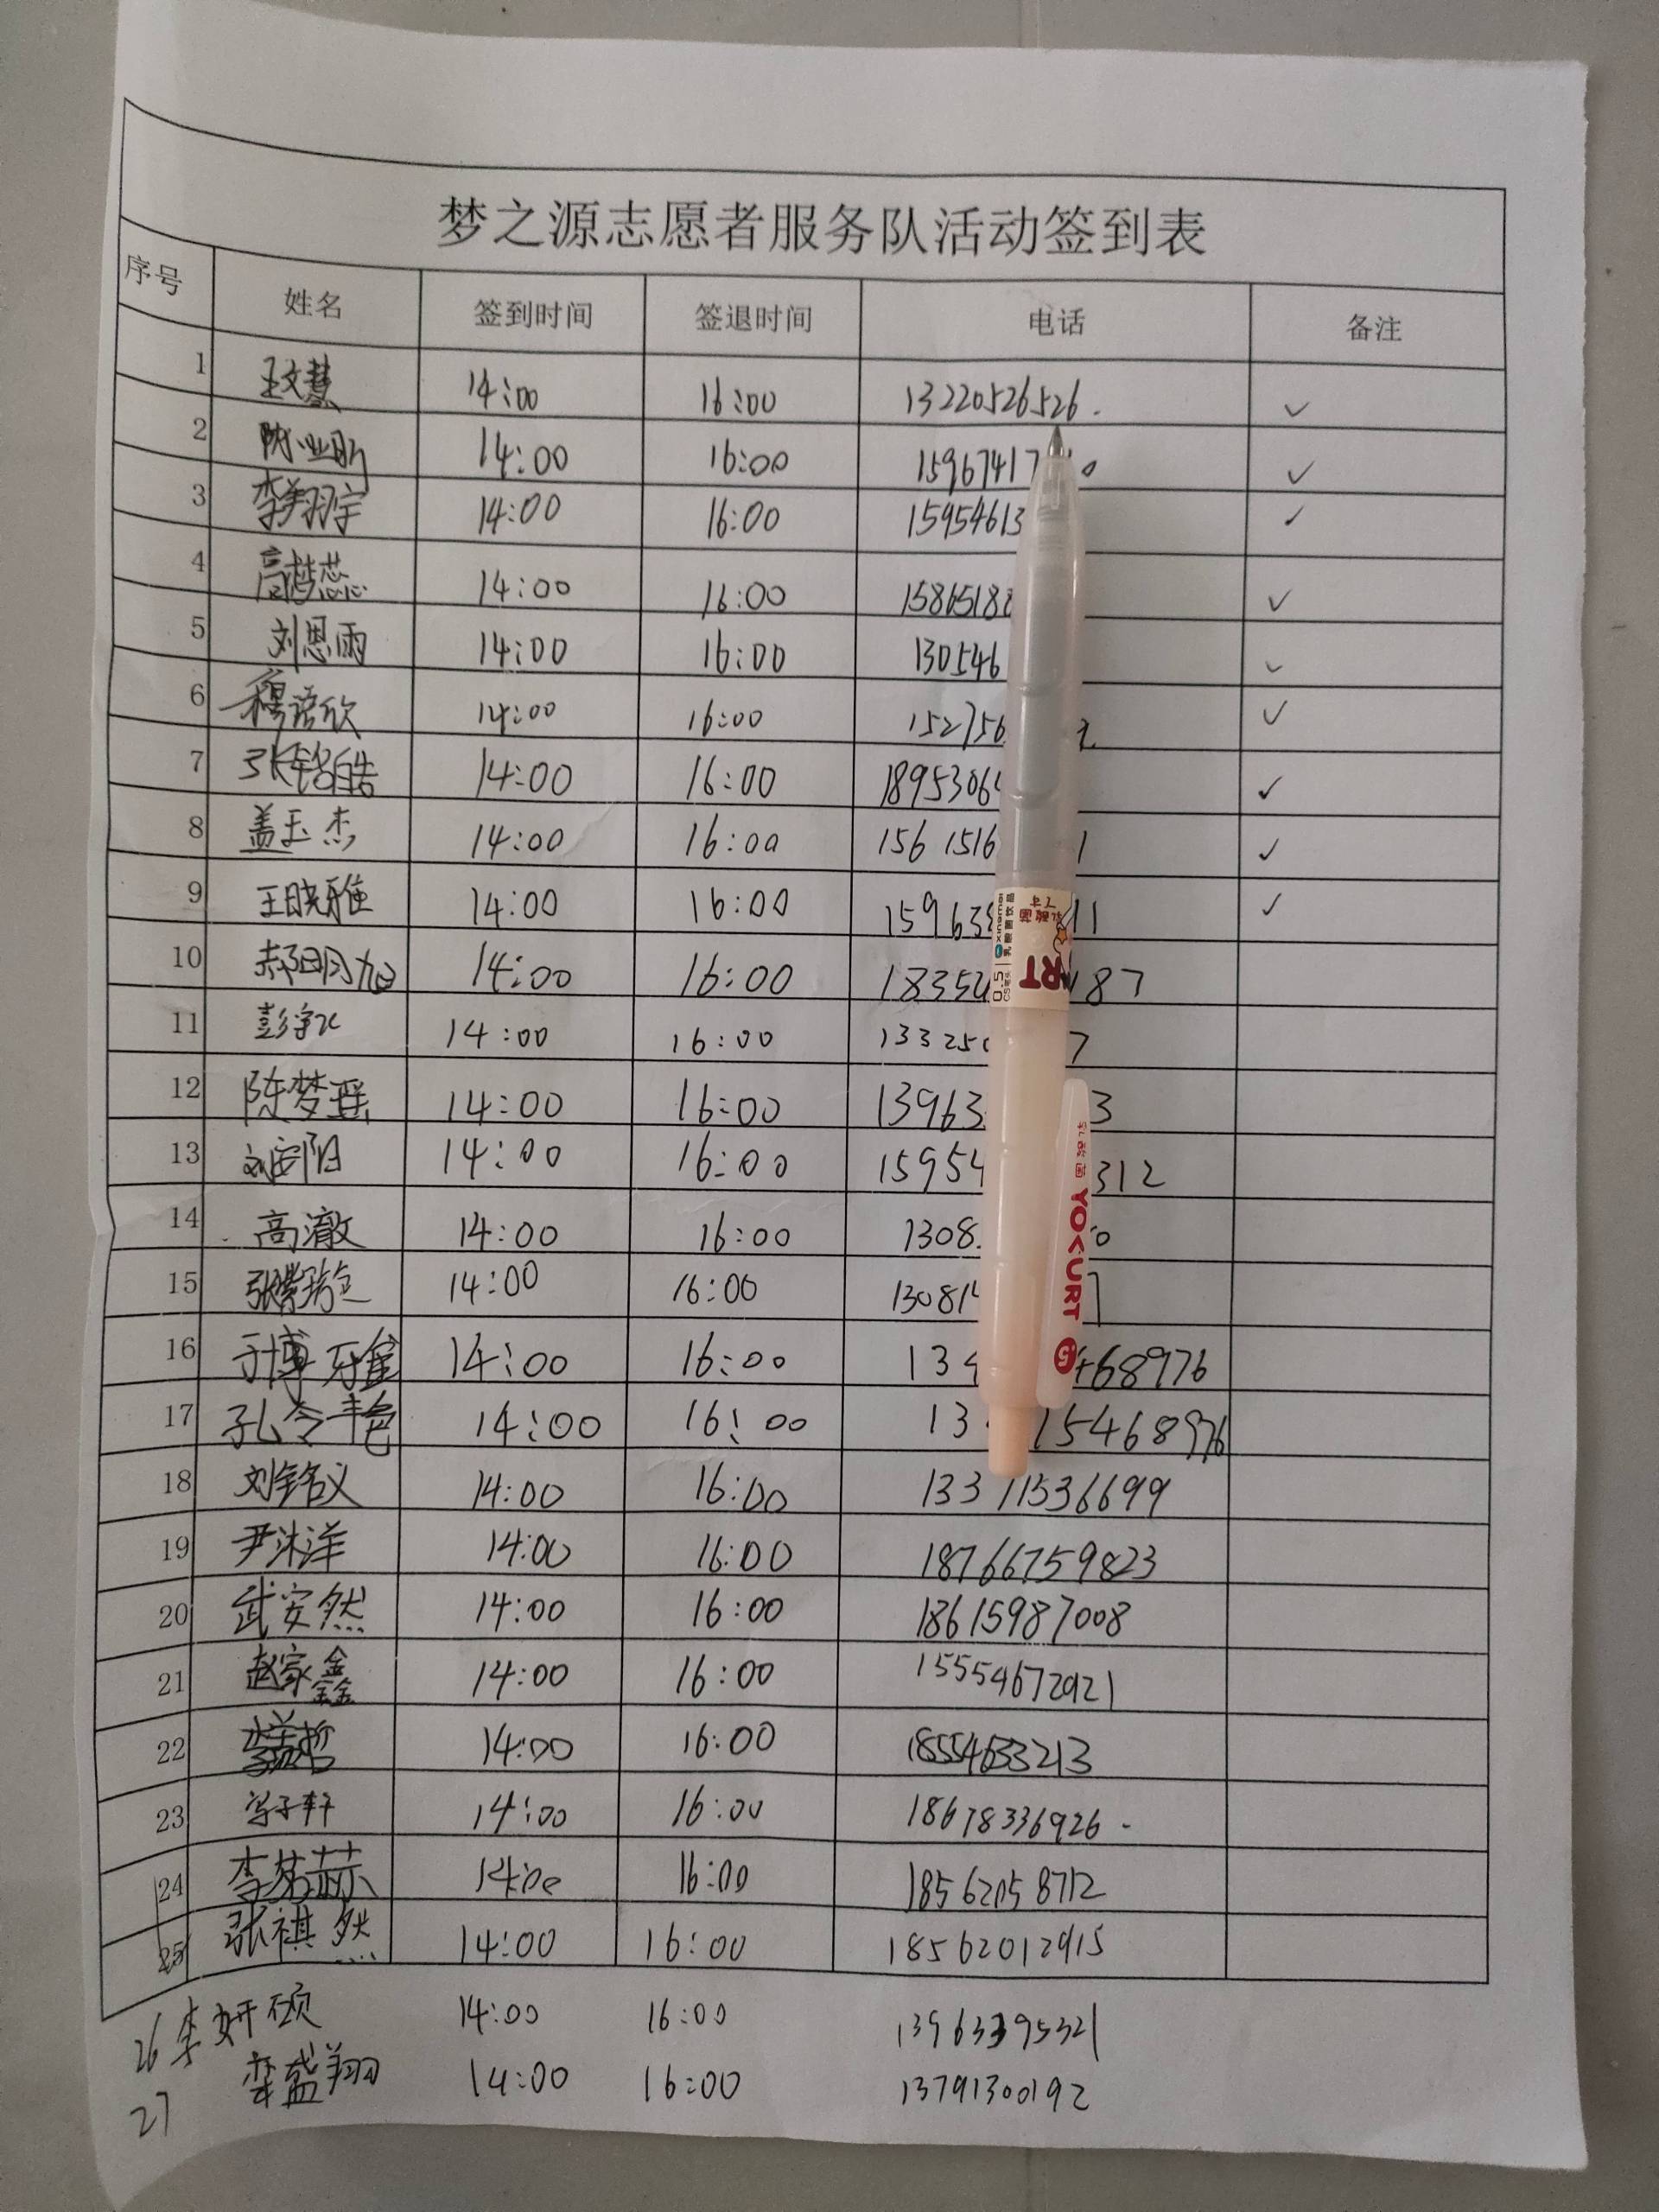 梦之源志愿者服务队活动签到表
序号 姓名 签到时间 签退时间 电话 备注
1 王文慧 14:00 16:00 13220526526. ✓
2 14:00 16:00 15967417 0 ✓
3 李美羽宇 14:00 16:00 15954613 ✓
4 高梦蕊 14:00 16:00 15865188 ✓
5 刘思雨 14:00 16:00 130546 ✓
6 穆语欣 14:00 16:00 152756 2 ✓
7 张铭皓 14:00 16:00 18953064 ✓
8 盖玉杰 14:00 16:00 156 1516 1 ✓
9 王晓雅 14:00 16:00 159638 11 ✓
10 郝明旭 14:00 16:00 18354 187
11 彭 14:00 16:00 133250 7
12 陈梦瑶 14:00 16:00 13963 3
13 刘安阳 14:00 16:00 15954 312
14 高澈 14:00 16:00 1308 0
15 张紫 14:00 16:00 130814 7
16 于博雅 14:00 16:00 134 468976
17 孔令艳 14:00 16:00 13 15468976
18 刘铭义 14:00 16:00 133 11536699
19 尹沐洋 14:00 16:00 18766759823
20 武安然 14:00 16:00 18615987008
21 赵家鑫 14:00 16:00 15554672921
22 14:00 16:00 18554633213
23 子轩 14:00 16:00 18678336926.
24 李若赫 14:00 16:00 18562058712
25 张祺然 14:00 16:00 18562012915
26 李妍颂 14:00 16:00 13963395321
27 李盛翔 14:00 16:00 13791300192
0.5
RT
乳酸菌
YO<URT